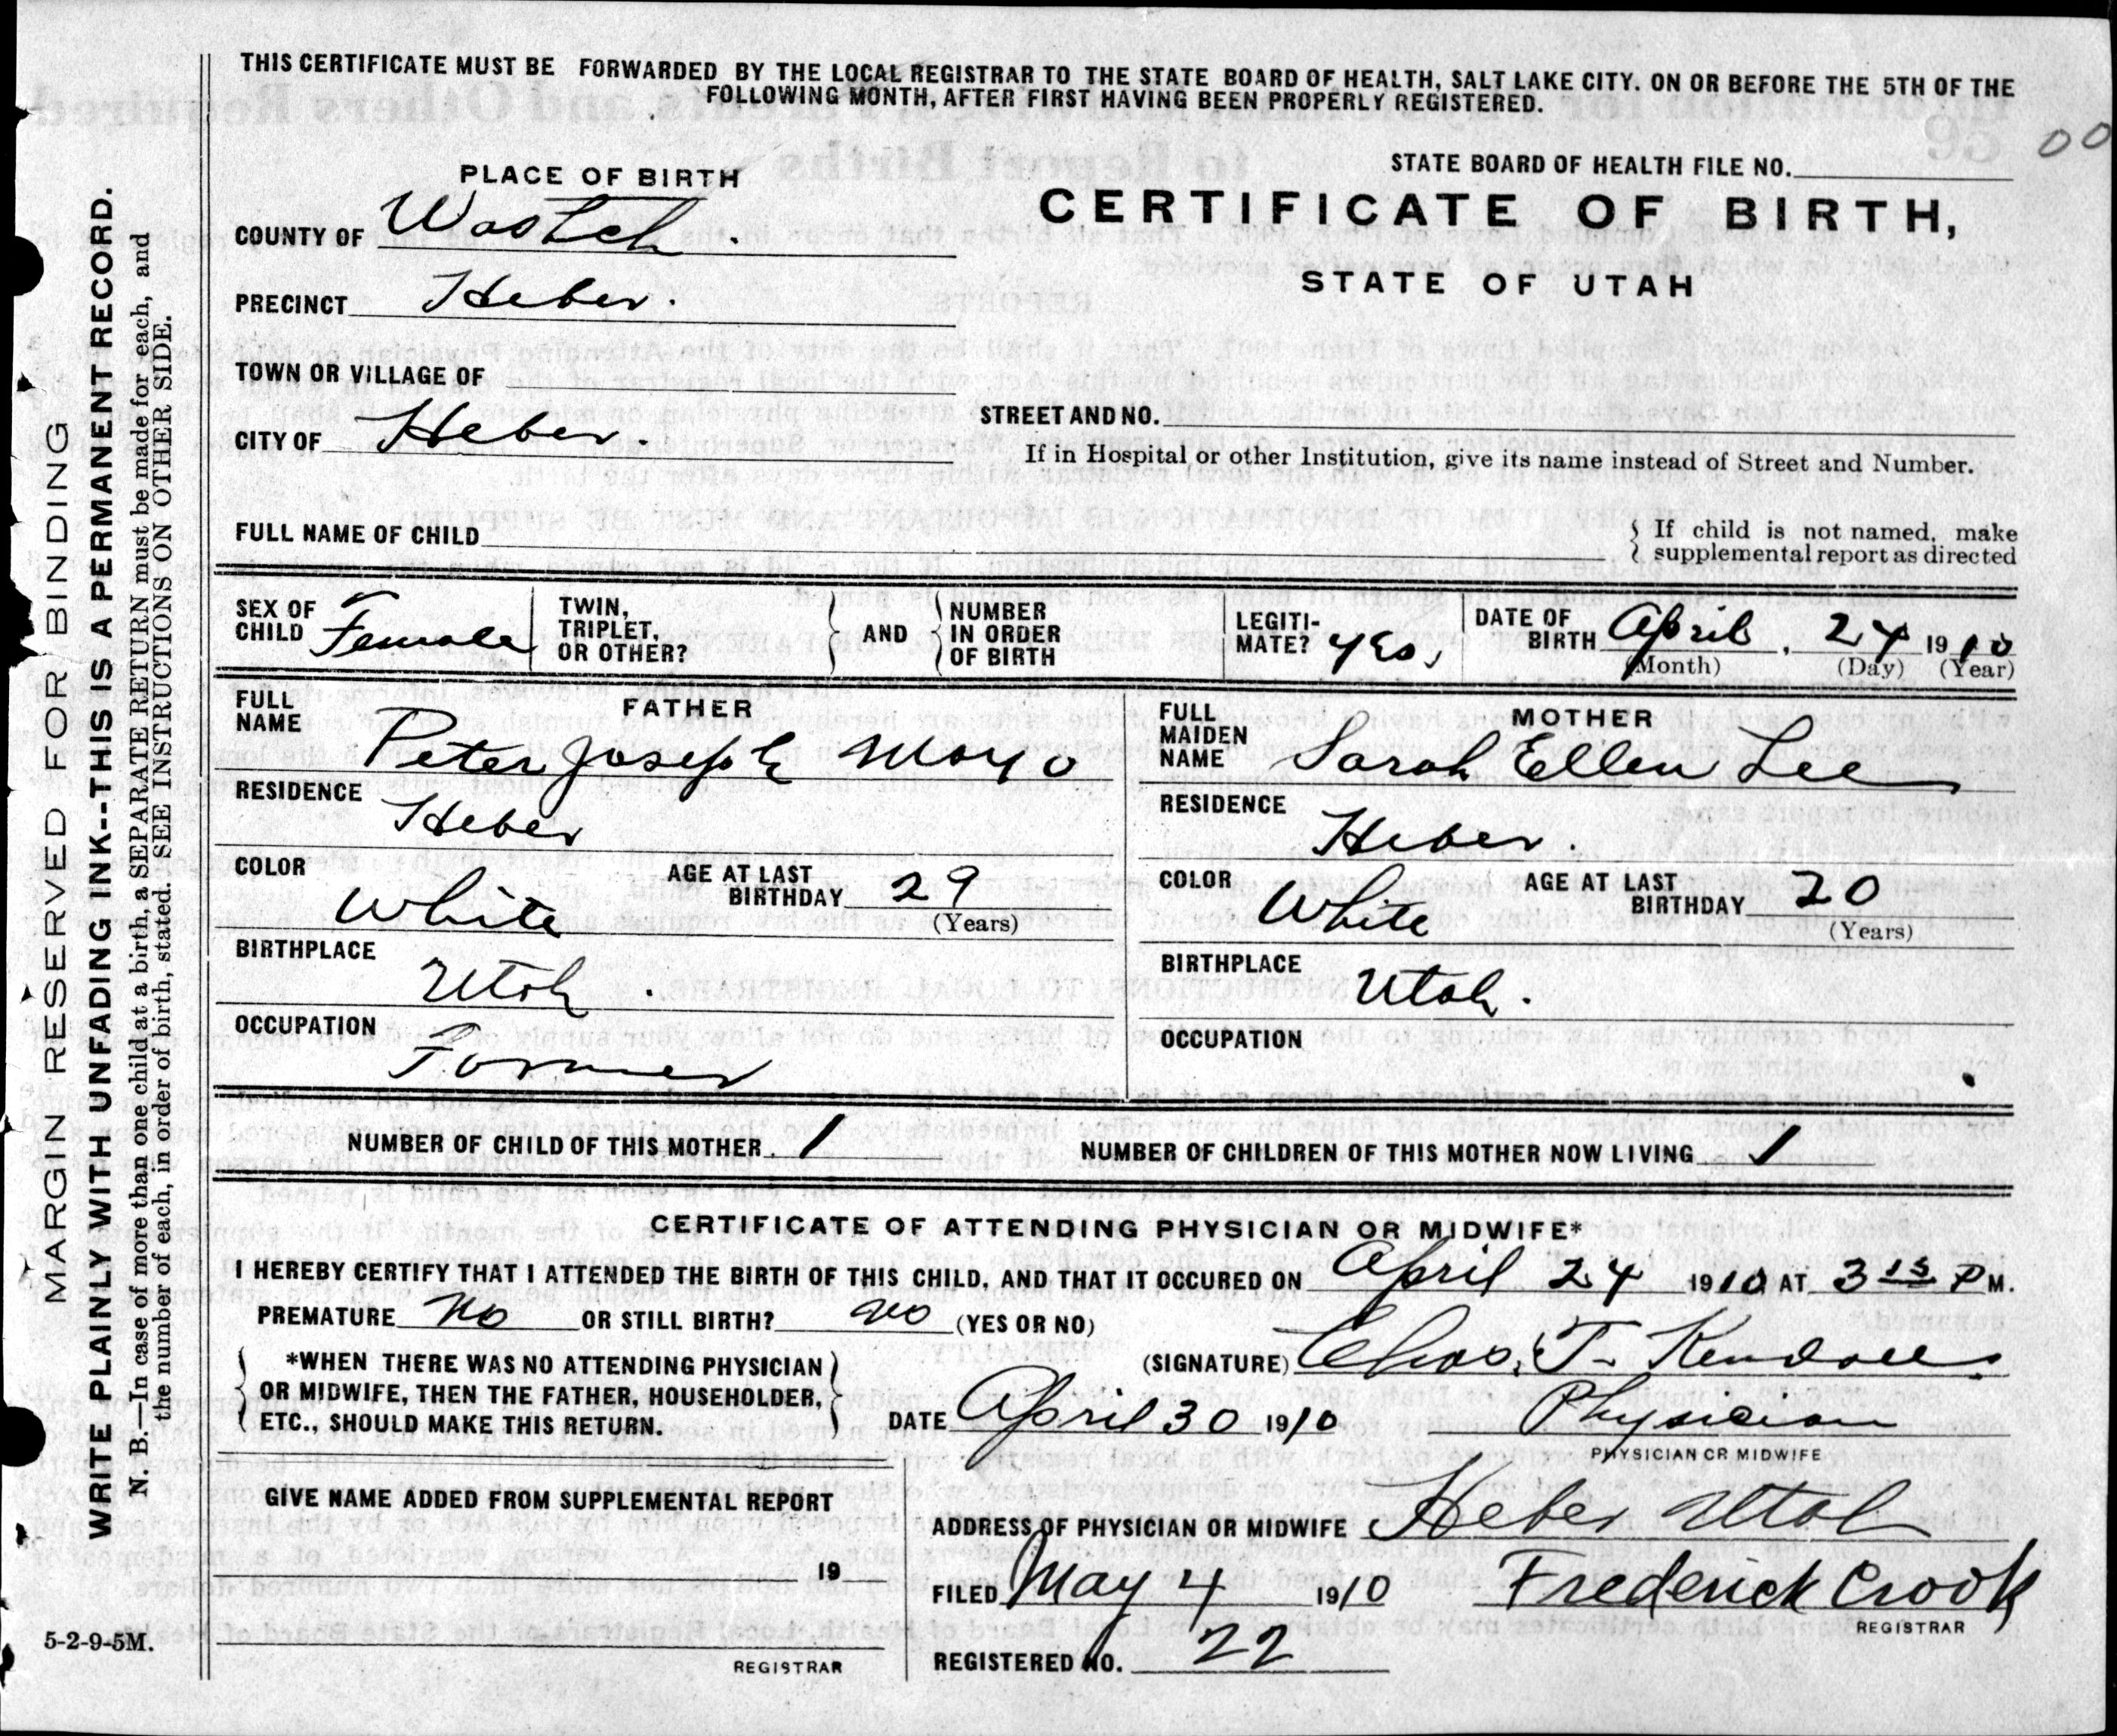 THIS CERTIFICATE MUST BE FORWARDED BY THE LOCAL REGISTRAR TO THE STATE BOARD OF HEALTH, SALT LAKE CITY. ON OR BEFORE THE 5TH OF THE
FOLLOWING MONTH, AFTER FIRST HAVING BEEN PROPERLY REGISTERED.
00
STATE BOARD OF HEALTH FILE NO.
PLACE OF BIRTH
CERTIFICATE OF BIRTH,
STATE OF UTAH
COUNTY OF Wastch.
PRECINCT Heber.
TOWN OR VILLAGE OF
STREET AND NO.
CITY OF Heber.
If in Hospital or other Institution, give its name instead of Street and Number.
FULL NAME OF CHILD
If child is not named, make
supplemental report as directed
SEX OF CHILD Female
TWIN, TRIPLET, OR OTHER?
AND
NUMBER IN ORDER OF BIRTH
LEGITIMATE? Yes,
DATE OF BIRTH April, 24 1910
(Month) (Day) (Year)
FATHER
FULL NAME Peter Joseph Mayo
RESIDENCE Heber
COLOR White
AGE AT LAST BIRTHDAY 29
(Years)
BIRTHPLACE Utah.
OCCUPATION Farmer
MOTHER
FULL MAIDEN NAME Sarah Ellen Lee
RESIDENCE Heber.
COLOR White
AGE AT LAST BIRTHDAY 20
(Years)
BIRTHPLACE Utah.
OCCUPATION
NUMBER OF CHILD OF THIS MOTHER. 1
NUMBER OF CHILDREN OF THIS MOTHER NOW LIVING 1
CERTIFICATE OF ATTENDING PHYSICIAN OR MIDWIFE*
I HEREBY CERTIFY THAT I ATTENDED THE BIRTH OF THIS CHILD, AND THAT IT OCCURED ON April 24 1910 AT 3 15 P M.
PREMATURE No OR STILL BIRTH? no (YES OR NO)
*WHEN THERE WAS NO ATTENDING PHYSICIAN
OR MIDWIFE, THEN THE FATHER, HOUSEHOLDER,
ETC., SHOULD MAKE THIS RETURN.
(SIGNATURE) Chas. T. Kendall.
DATE April 30 1910
Physician
PHYSICIAN OR MIDWIFE
GIVE NAME ADDED FROM SUPPLEMENTAL REPORT
19
REGISTRAR
ADDRESS OF PHYSICIAN OR MIDWIFE Heber Utah
FILED May 4 1910 Frederick Crook
REGISTRAR
REGISTERED NO. 22
5-2-9-5M.
MARGIN RESERVED FOR BINDING
WRITE PLAINLY WITH UNFADING INK--THIS IS A PERMANENT RECORD.
N. B.—In case of more than one child at a birth, a SEPARATE RETURN must be made for each, and
the number of each, in order of birth, stated. SEE INSTRUCTIONS ON OTHER SIDE.